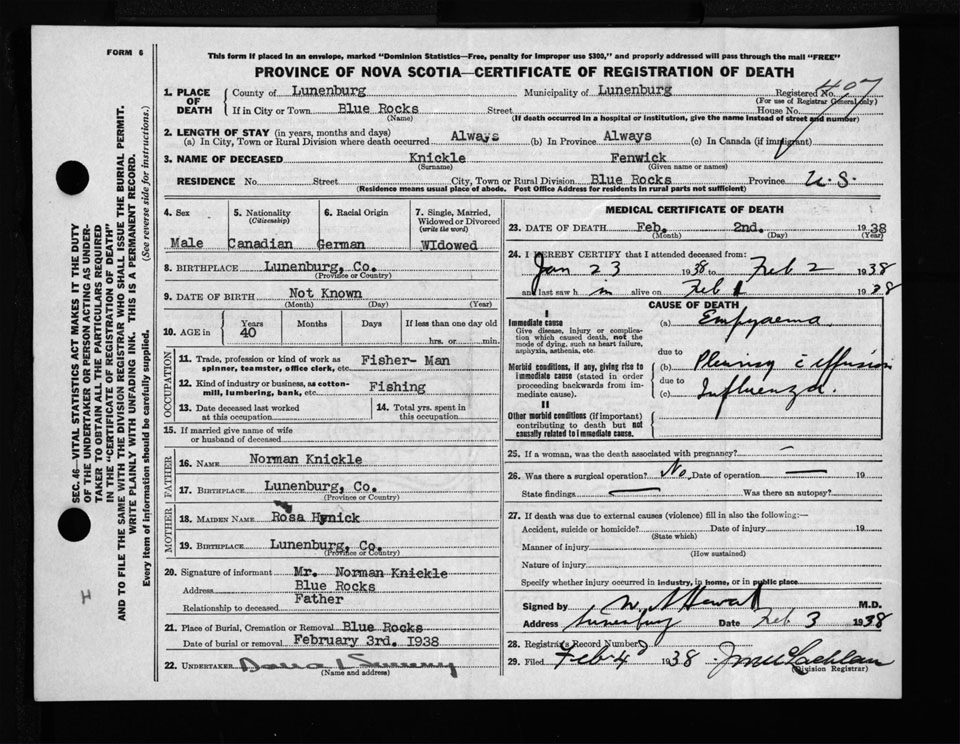 FORM 6
This form if placed in an envelope, marked "Dominion Statistics—Free, penalty for improper use $300," and properly addressed will pass through the mail "FREE"
PROVINCE OF NOVA SCOTIA—CERTIFICATE OF REGISTRATION OF DEATH
SEC. 46—VITAL STATISTICS ACT MAKES IT THE DUTY
OF THE UNDERTAKER OR PERSON ACTING AS UNDER-
TAKER TO OBTAIN ALL THE PARTICULARS REQUIRED
IN THE "CERTIFICATE OF REGISTRATION OF DEATH"
AND TO FILE THE SAME WITH THE DIVISION REGISTRAR WHO SHALL ISSUE THE BURIAL PERMIT.
WRITE PLAINLY WITH UNFADING INK. THIS IS A PERMANENT RECORD.
Every item of information should be carefully supplied. (See reverse side for instructions.)
1. PLACE OF DEATH
County of Lunenburg Municipality of Lunenburg Registered No. 407
(For use of Registrar General only)
If in City or Town Blue Rocks Street House No.
(Name) (If death occurred in a hospital or institution, give the name instead of street and number)
2. LENGTH OF STAY (in years, months and days)
(a) In City, Town or Rural Division where death occurred Always (b) In Province Always (c) In Canada (if immigrant)
3. NAME OF DECEASED Knickle Fenwick
(Surname) (Given name or names)
RESIDENCE No. Street City, Town or Rural Division Blue Rocks Province U.S.
(Residence means usual place of abode. Post Office Address for residents in rural parts not sufficient)
4. Sex
Male
5. Nationality
(Citizenship)
Canadian
6. Racial Origin
German
7. Single, Married,
Widowed or Divorced
(write the word)
WIdowed
8. BIRTHPLACE Lunenburg, Co.
(Province or Country)
9. DATE OF BIRTH Not Known
(Month) (Day) (Year)
10. AGE in
Years Months Days If less than one day old
40 hrs. or min.
OCCUPATION
11. Trade, profession or kind of work as
spinner, teamster, office clerk, etc. Fisher- Man
12. Kind of industry or business, as cotton-
mill, lumbering, bank, etc. Fishing
13. Date deceased last worked
at this occupation
14. Total yrs. spent in
this occupation
15. If married give name of wife
or husband of deceased
FATHER
16. NAME Norman Knickle
17. BIRTHPLACE Lunenburg, Co.
(Province or Country)
MOTHER
18. MAIDEN NAME Rosa Hynick
19. BIRTHPLACE Lunenburg, Co.
(Province or Country)
20. Signature of informant Mr. Norman Knickle
Address Blue Rocks
Relationship to deceased Father
21. Place of Burial, Cremation or Removal Blue Rocks
Date of burial or removal February 3rd. 1938
22. UNDERTAKER
(Name and address)
MEDICAL CERTIFICATE OF DEATH
23. DATE OF DEATH Feb. 2nd. 1938
(Month) (Day) (Year)
24. I HEREBY CERTIFY that I attended deceased from:
Jan 23 1938 to Feb 2 1938
and last saw h im alive on Feb 1 1938
CAUSE OF DEATH
I
Immediate cause (a) Empyaema
Give disease, injury or complica-
tion which caused death, not the
mode of dying, such as heart failure,
asphyxia, asthenia, etc.
due to
Morbid conditions, if any, giving rise to
immediate cause (stated in order
proceeding backwards from im-
mediate cause).
(b) Pleurisy c effusion
due to
(c) Influenza
II
Other morbid conditions (if important)
contributing to death but not
causally related to immediate cause.
25. If a woman, was the death associated with pregnancy? —
26. Was there a surgical operation? No Date of operation — 19
State findings — Was there an autopsy?
27. If death was due to external causes (violence) fill in also the following:—
Accident, suicide or homicide? Date of injury 19
(State which)
Manner of injury
(How sustained)
Nature of injury
Specify whether injury occurred in industry, in home, or in public place
Signed by M.D.
Address Lunenburg Date Feb 3 1938
28. Registrar's Record Number
29. Filed Feb 4 1938 McLachlan
(Division Registrar)